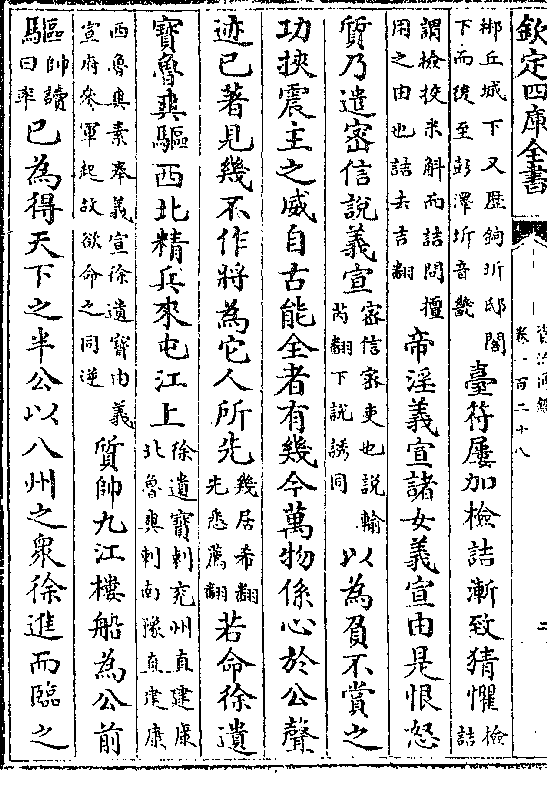 欽定四庫全書
資治通鑑
卷一百二十八
二
梆丘城下又歷鉤圻邸閣下而後至彭澤圻音畿
臺符屢加檢詰漸致猜懼檢詰謂檢挍米斛而詰問擅用之由也詰去吉翻
帝淫義宣諸女義宣由是恨怒
質乃遣密信說義宣密信密吏也說輸芮翻下說誘同以為負不賞之
功挾震主之威自古能全者有幾今萬物係心於公聲
迹已著見幾不作將為它人所先幾居希翻先悉薦翻若命徐遺
寶魯爽驅西北精兵來屯江上徐遺寶刺兖州直建康北魯爽刺南豫直建康
西魯爽素奉義宣徐遺寶由義宣府參軍起故欲命之同逆質帥九江樓船為公前
驅帥讀曰率已為得天下之半公以八州之衆徐進而臨之